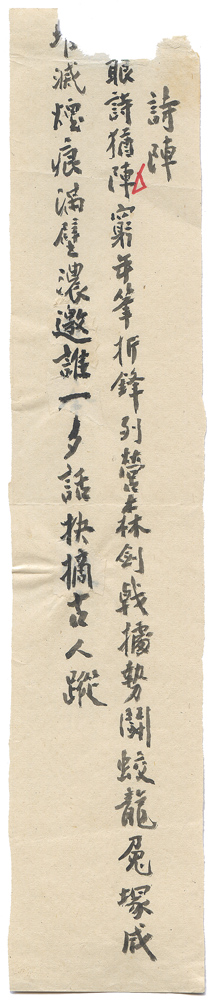 詩陣
眼詩猶陣窮年筆折鋒列營森劍戟擂勢鬭蛟龍兔塚成
滅煙痕滿壁濃邀誰一夕話抉摘古人蹤